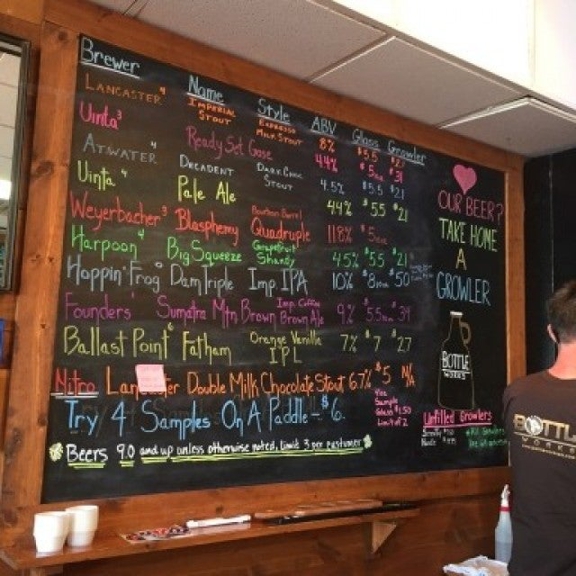 Brewer Name Style ABV Glass Growler
Lancaster 4 Imperial Stout Espresso Milk Stout 8% $5.5
Uinta 3 Ready Set Gose 4.4%
Atwater 4 Decadent Dark Choc Stout 4.5% $5.5 $21
Uinta 4 Pale Ale 4.4% $5.5 $21
Weyerbacher 3 Blasphemy Bourbon Barrel Quadruple 11.8% $5
Harpoon 4 Big Squeeze Grapefruit Shandy 4.5% $5.5 $21
Hoppin' Frog DamTriple Imp IPA 10% $8 $50
Founders' Sumatra Mtn Brown Imp. Coffee Brown Ale 9%
Ballast Point 6 Fathom Orange Vanilla IPL 7% $7 $27
Nitro Lancaster Double Milk Chocolate Stout 6.7% $5 N/A
Try 4 Samples On A Paddle - $6.
4oz Sample Glass $1.50 Limit of 2
Beers 9.0 and up unless otherwise noted, limit 3 per customer
OUR BEER?
TAKE HOME
A
GROWLER
BOTTLE
WORKS
Unfilled Growlers
BOTTLE
WORKS